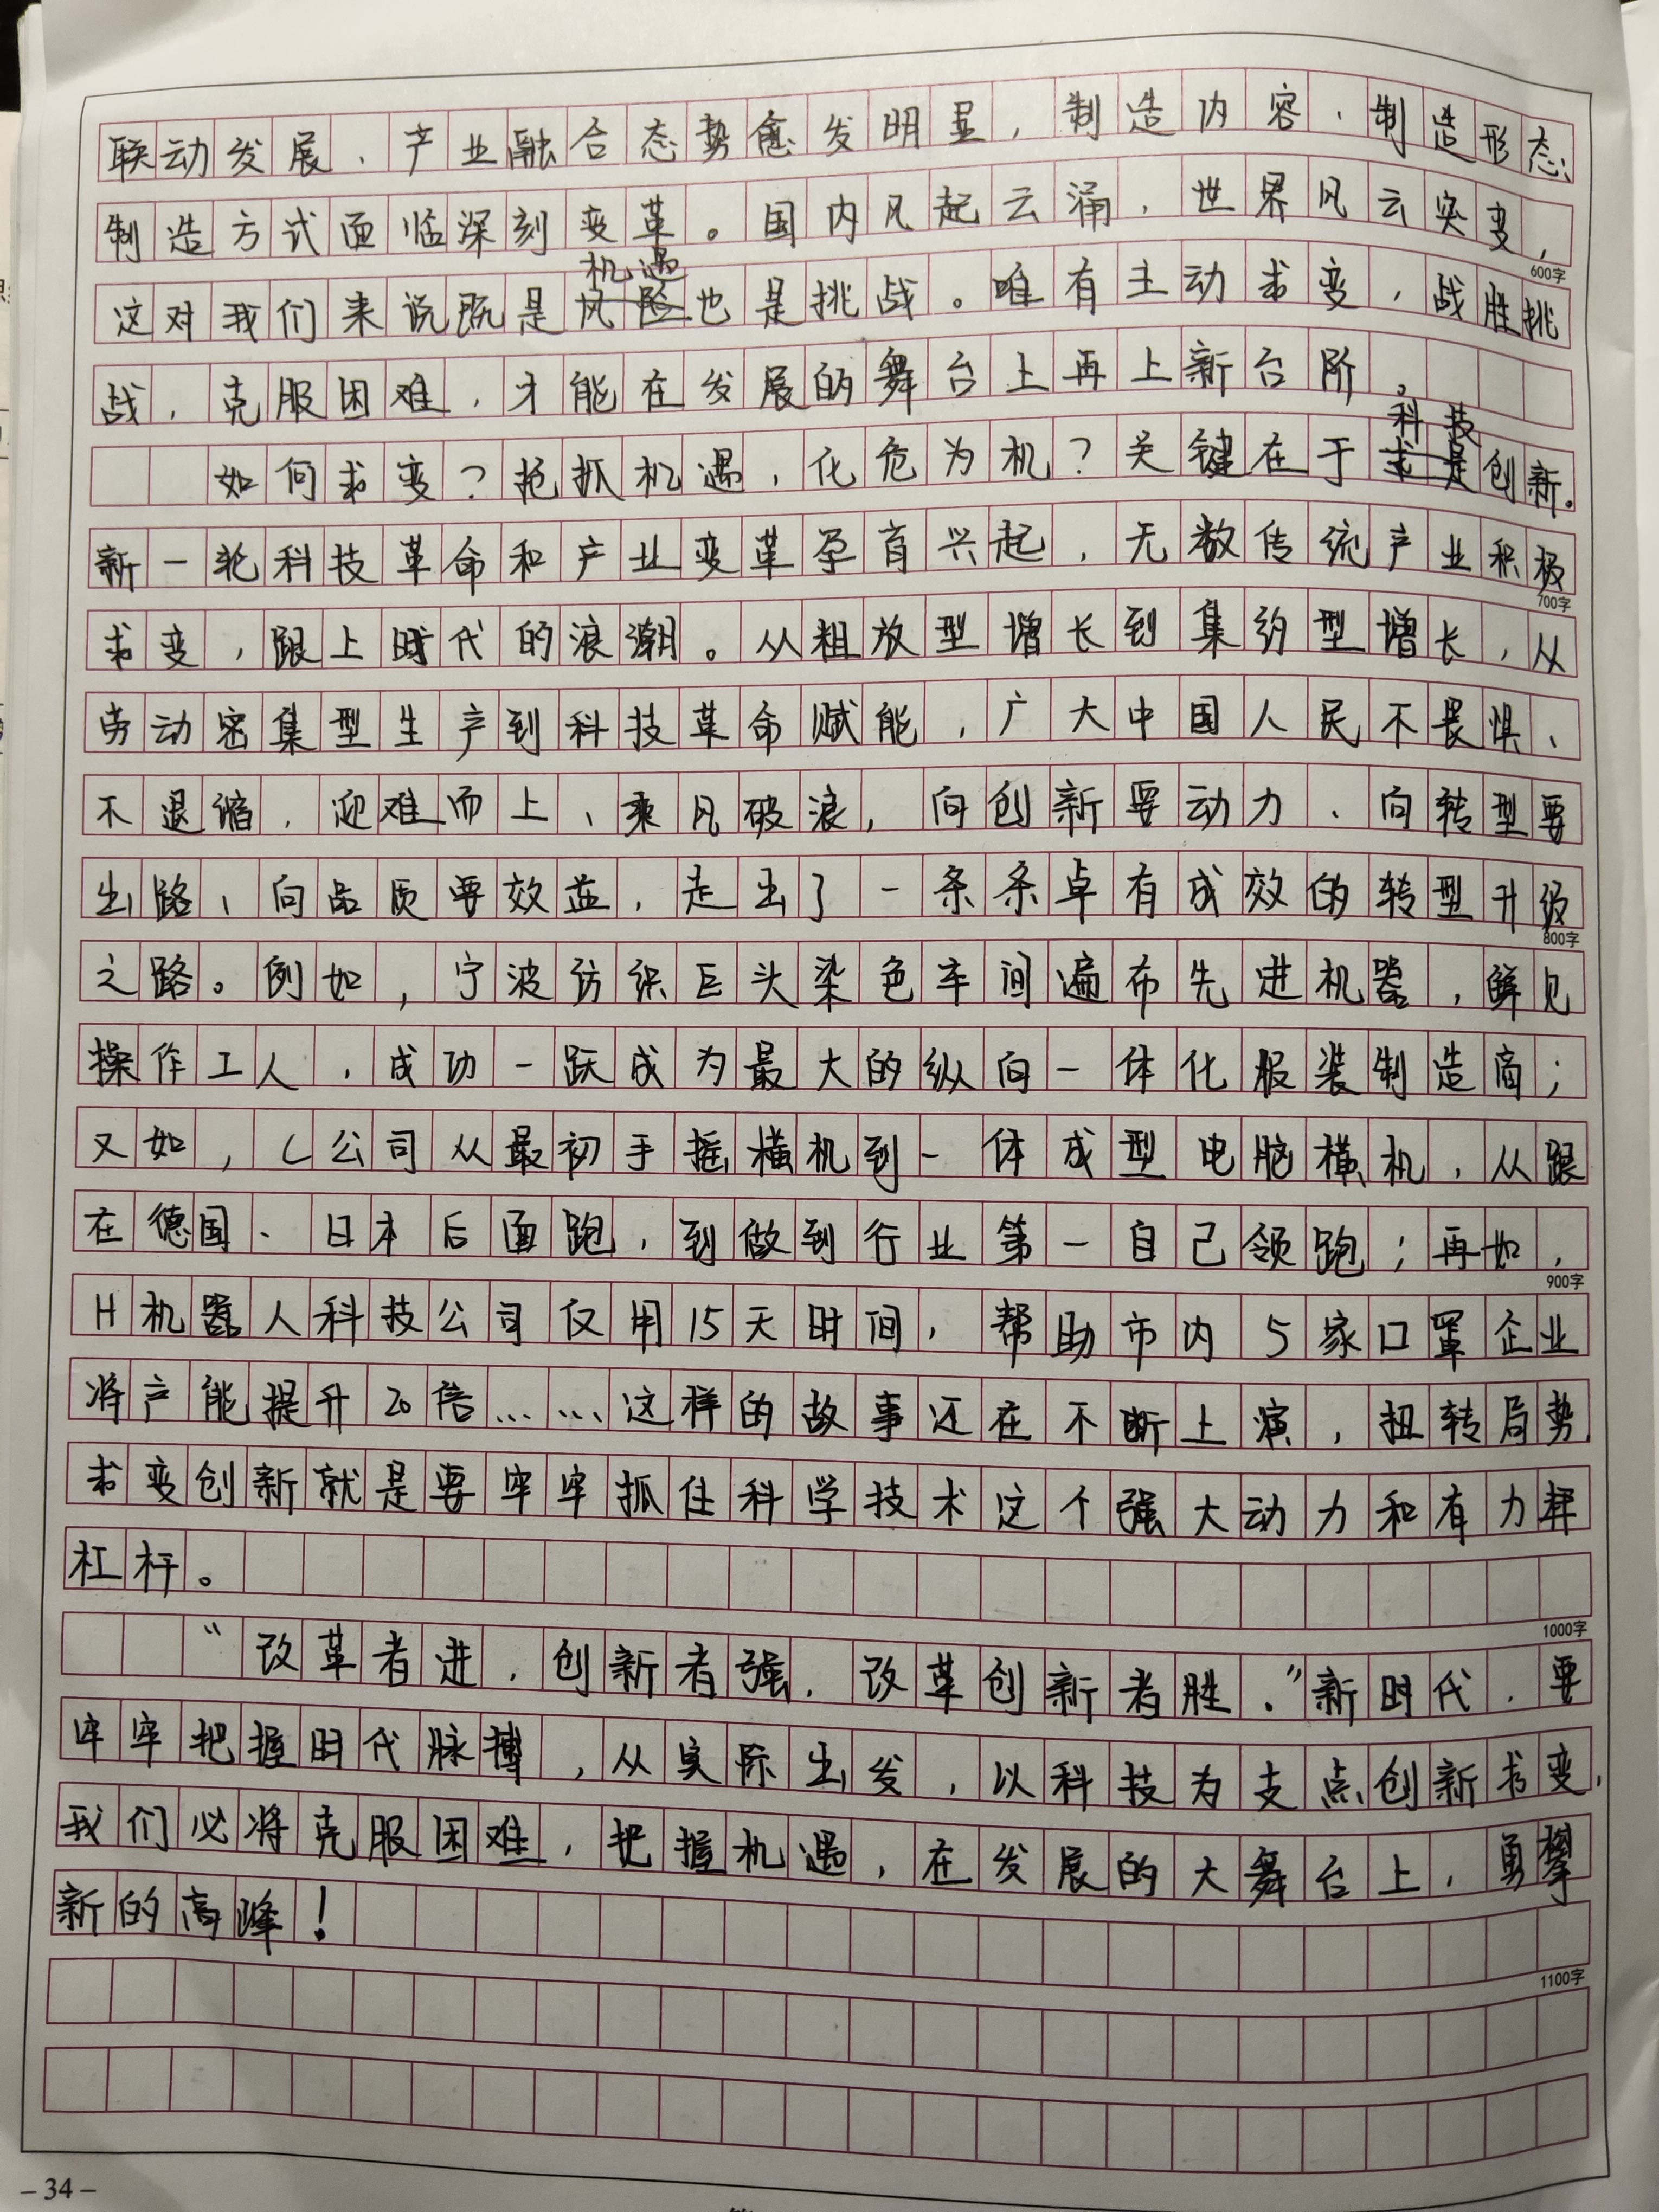 联动发展、产业融合态势愈发明显，制造内容、制造形态、
制造方式面临深刻变革。国内风起云涌，世界风云突变，
600字
机遇
这对我们来说既是风险也是挑战。唯有主动求变，战胜挑
战，克服困难，才能在发展的舞台上再上新台阶。
科技
如何求变？抢抓机遇，化危为机？关键在于求是创新。
新一轮科技革命和产业变革孕育兴起，无数传统产业积极
700字
求变，跟上时代的浪潮。从粗放型增长到集约型增长，从
劳动密集型生产到科技革命赋能，广大中国人民不畏惧、
不退缩，迎难而上、乘风破浪，向创新要动力、向转型要
出路、向品质要效益，走出了一条条卓有成效的转型升级
800字
之路。例如，宁波纺织巨头染色车间遍布先进机器，鲜见
操作工人，成功一跃成为最大的纵向一体化服装制造商；
又如，C公司从最初手摇横机到一体成型电脑横机，从跟
在德国、日本后面跑，到做到行业第一自己领跑；再如，
900字
H机器人科技公司仅用15天时间，帮助市内5家口罩企业
将产能提升20倍……这样的故事还在不断上演，扭转局势
求变创新就是要牢牢抓住科学技术这个强大动力和有力
杠杆。
1000字
“改革者进，创新者强，改革创新者胜。”新时代，要
牢牢把握时代脉搏，从实际出发，以科技为支点创新求变，
我们必将克服困难，把握机遇，在发展的大舞台上，勇攀
新的高峰！
1100字
－34－